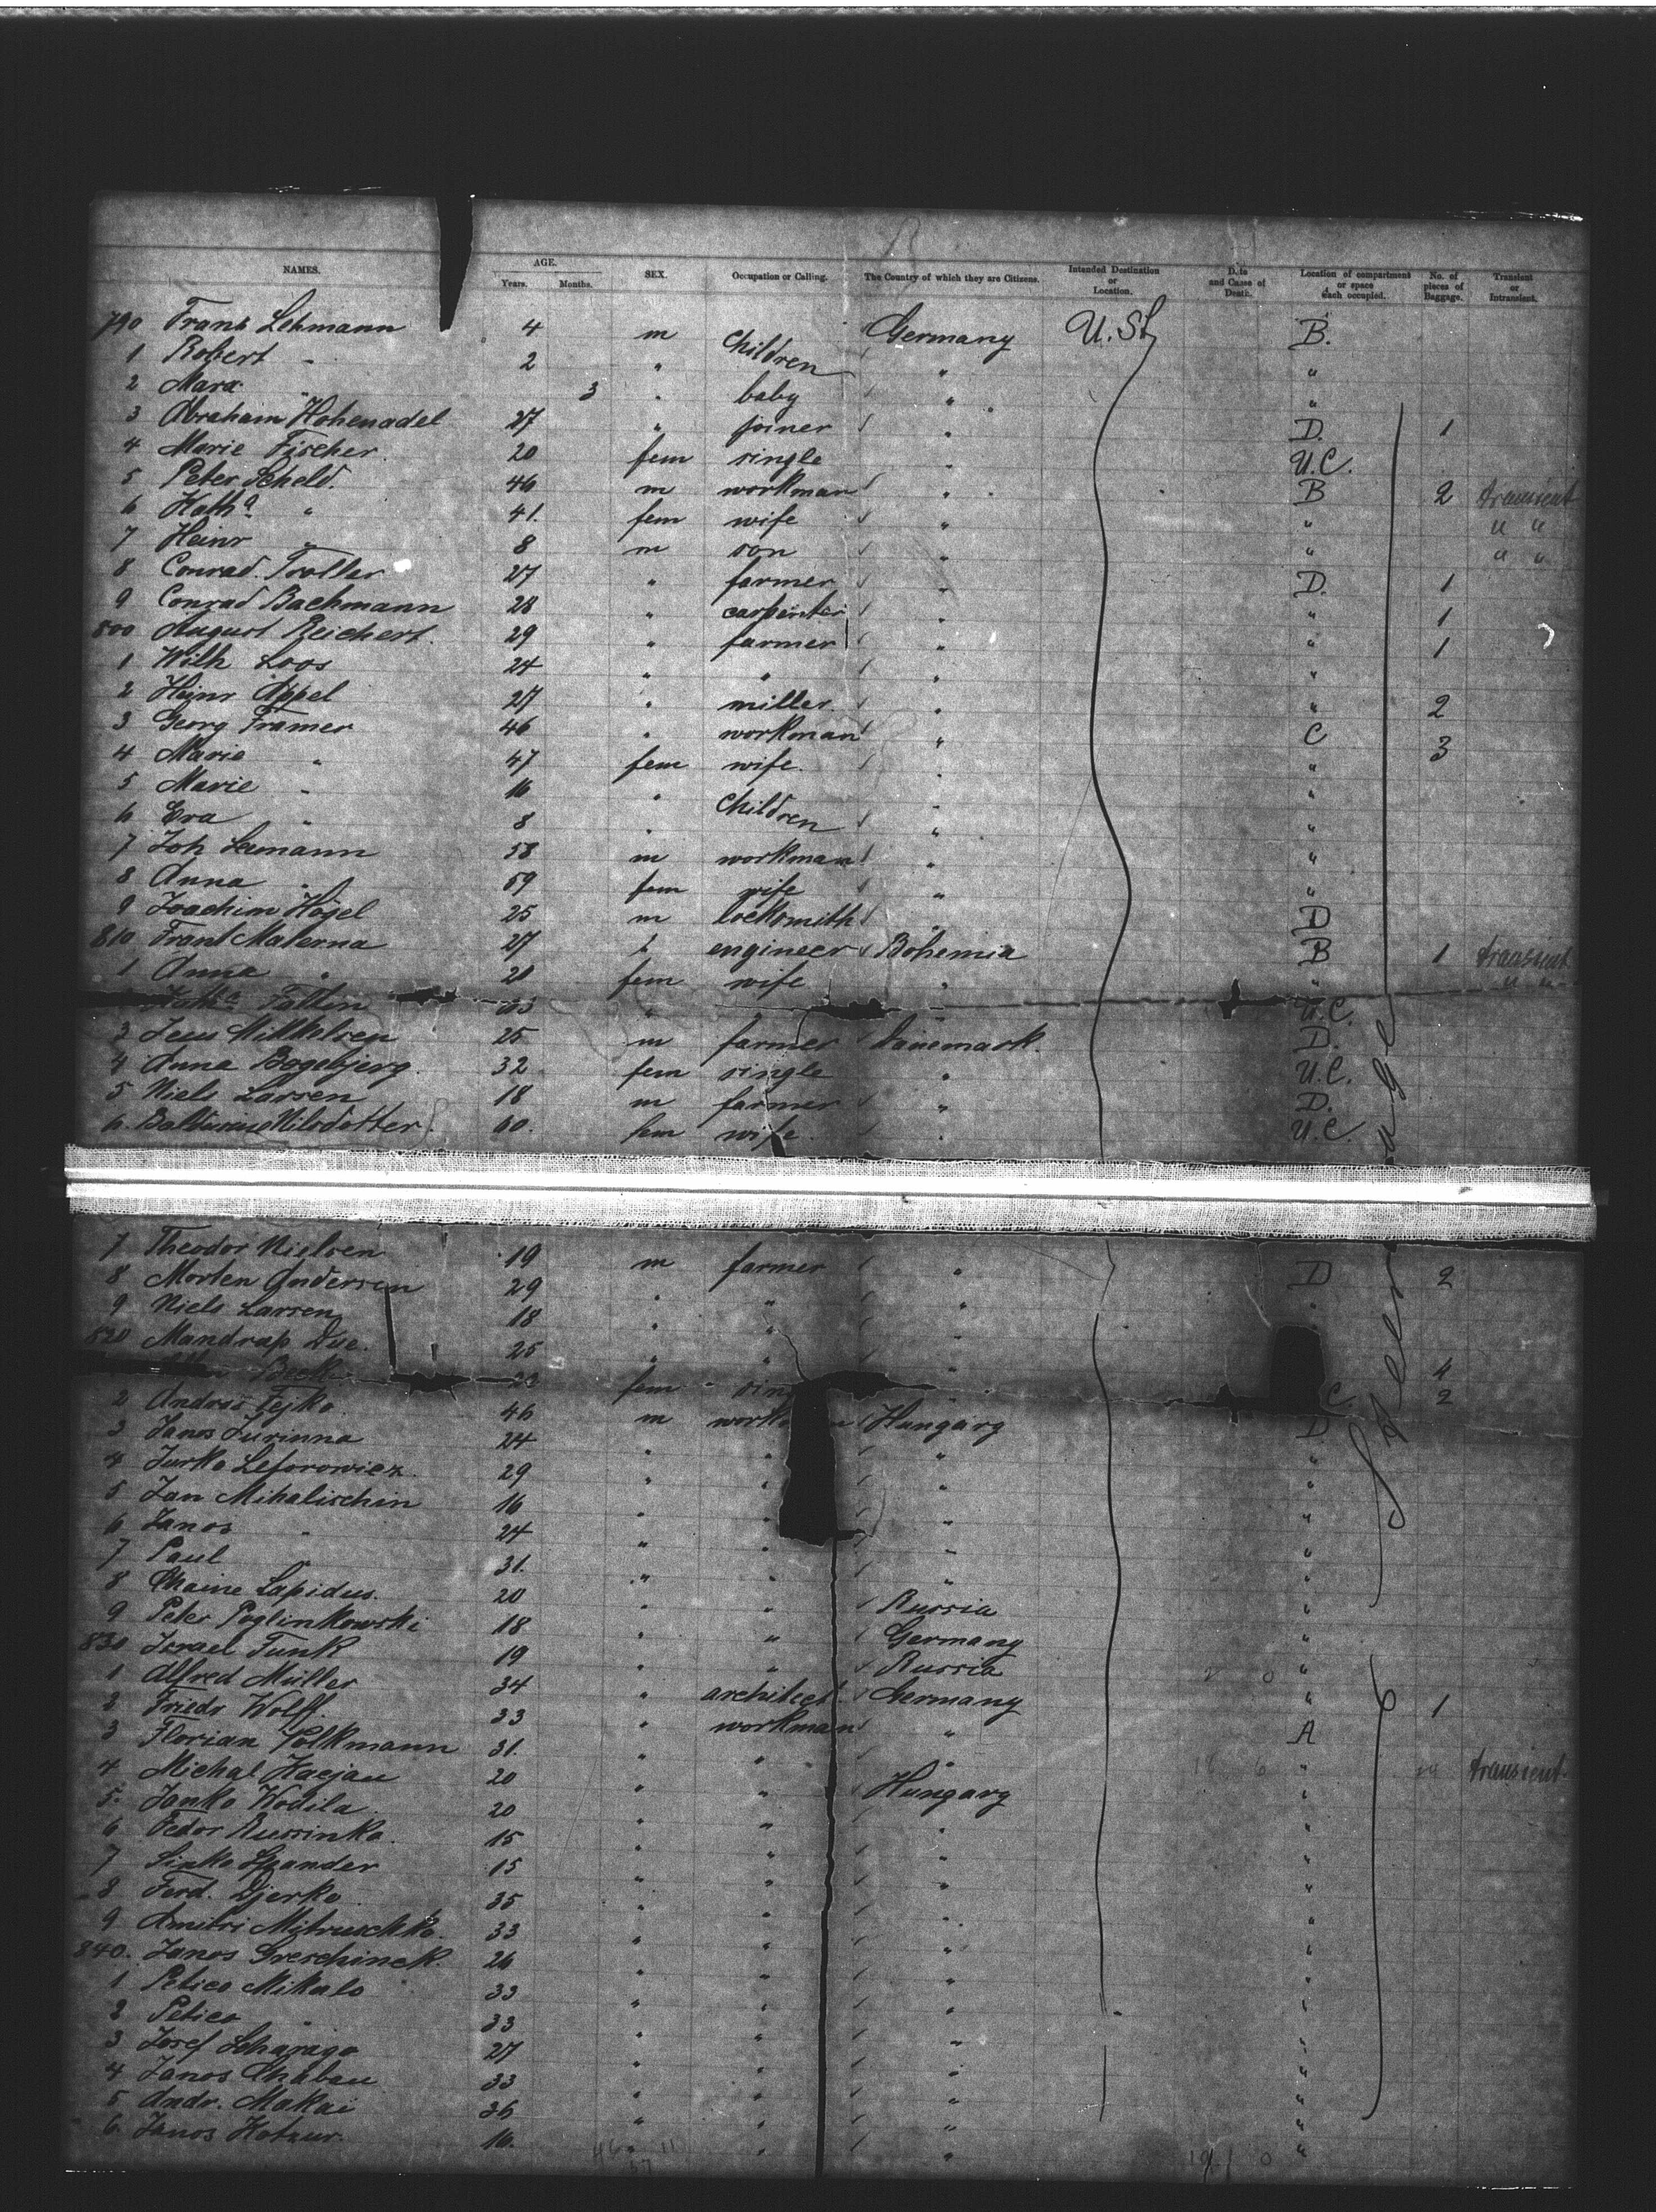 NAMES. AGE. Years. Months. SEX. Occupation or Calling. The Country of which they are Citizens. Intended Destination or Location. Date and Cause of Death. Location of compartment or space each occupied. No. of pieces of Baggage. Transient or Intransient.
790 Franz Lehmann 4 m Children Germany U. St. B.
1 Robert " 2 " " "
2 Marx " 3 " baby " "
3 Abraham Hohenadel 27 " joiner " D. 1
4 Marie Fischer 20 fem single " U.C.
5 Peter Scheld. 46 m workman " B 2 transient
6 Katha " 41. fem wife " " " "
7 Heinr " 8 m son " " " "
8 Conrad Troller 27 " farmer " D. 1
9 Conrad Bachmann 28 " carpenter " " 1
800 August Reichert. 29 " farmer " " 1
1 Wilh Loos 24 " " " "
2 Heinr Appel 27 " miller " " 2
3 Georg Framer 46 " workman " C 3
4 Marie " 47 fem wife. " "
5 Marie " 16 " Children " "
6 Eva " 8 " " "
7 Joh Lemann 58 m workman " "
8 Anna " 59 fem wife " "
9 Joachim Högel 25 m locksmith " D
810 Franz Materna 27 " engineer Bohemia B 1 transient
1 Anna " 21 fem wife " " " "
Katha Fatten " U.C.
3 Jens Mikkelsen 25 m farmer Danemark. D.
4 Anna Bogebjerg. 32 fem single " U.C.
5 Niels Larsen 18 m farmer " D.
6. Nilsdotter. 60. fem wife. " U.C.
7 Theodor Nielsen 19 m farmer " D 2
8 Morten Andersen 29 " " " "
9 Niels Larsen 18 " " "
820 Mandrap Due. 25 " " " 4
Beck 22 fem sing " C 2
2 Andras Fejko 46 m work n Hungary D
3 Janos Jurinna 24 " " " "
4 Jurko Leforowicz. 29 " " " "
5 Jan Mihalischin 16 " " " "
6 Janos " 24 " " " "
7 Paul " 31. " " " "
8 Chaine Lapidus. 20 " " Russia "
9 Peter Poglinkowski 18 " " Germany "
830 Israel Funk 19 " " Russia "
1 Alfred Müller 34 " architect. Germany " 1
2 Friedr Wolff. 33 " workman " A
3 Florian Volkmann 31. " " " " transient
4 Michal Hacjau 20 " " Hungary "
5. Janko Wodila 20 " " " "
6 Fedor Russinko. 15 " " " "
7 Sinko Spander 15 " " " "
8 Ferd. Djerko 35 " " " "
9 Dmitri Mitruschko. 33 " " " "
840. Janos Greschinek. 26 " " " "
1 Petico Mikalo 33 " " " "
2 Petico " 33 " " " "
3 Josef Scharago 27 " " " "
4 Janos Chaban 33 " " " "
5 Andr. Makai 36 " " " "
6. Janos Kotzur. 16. " " " "